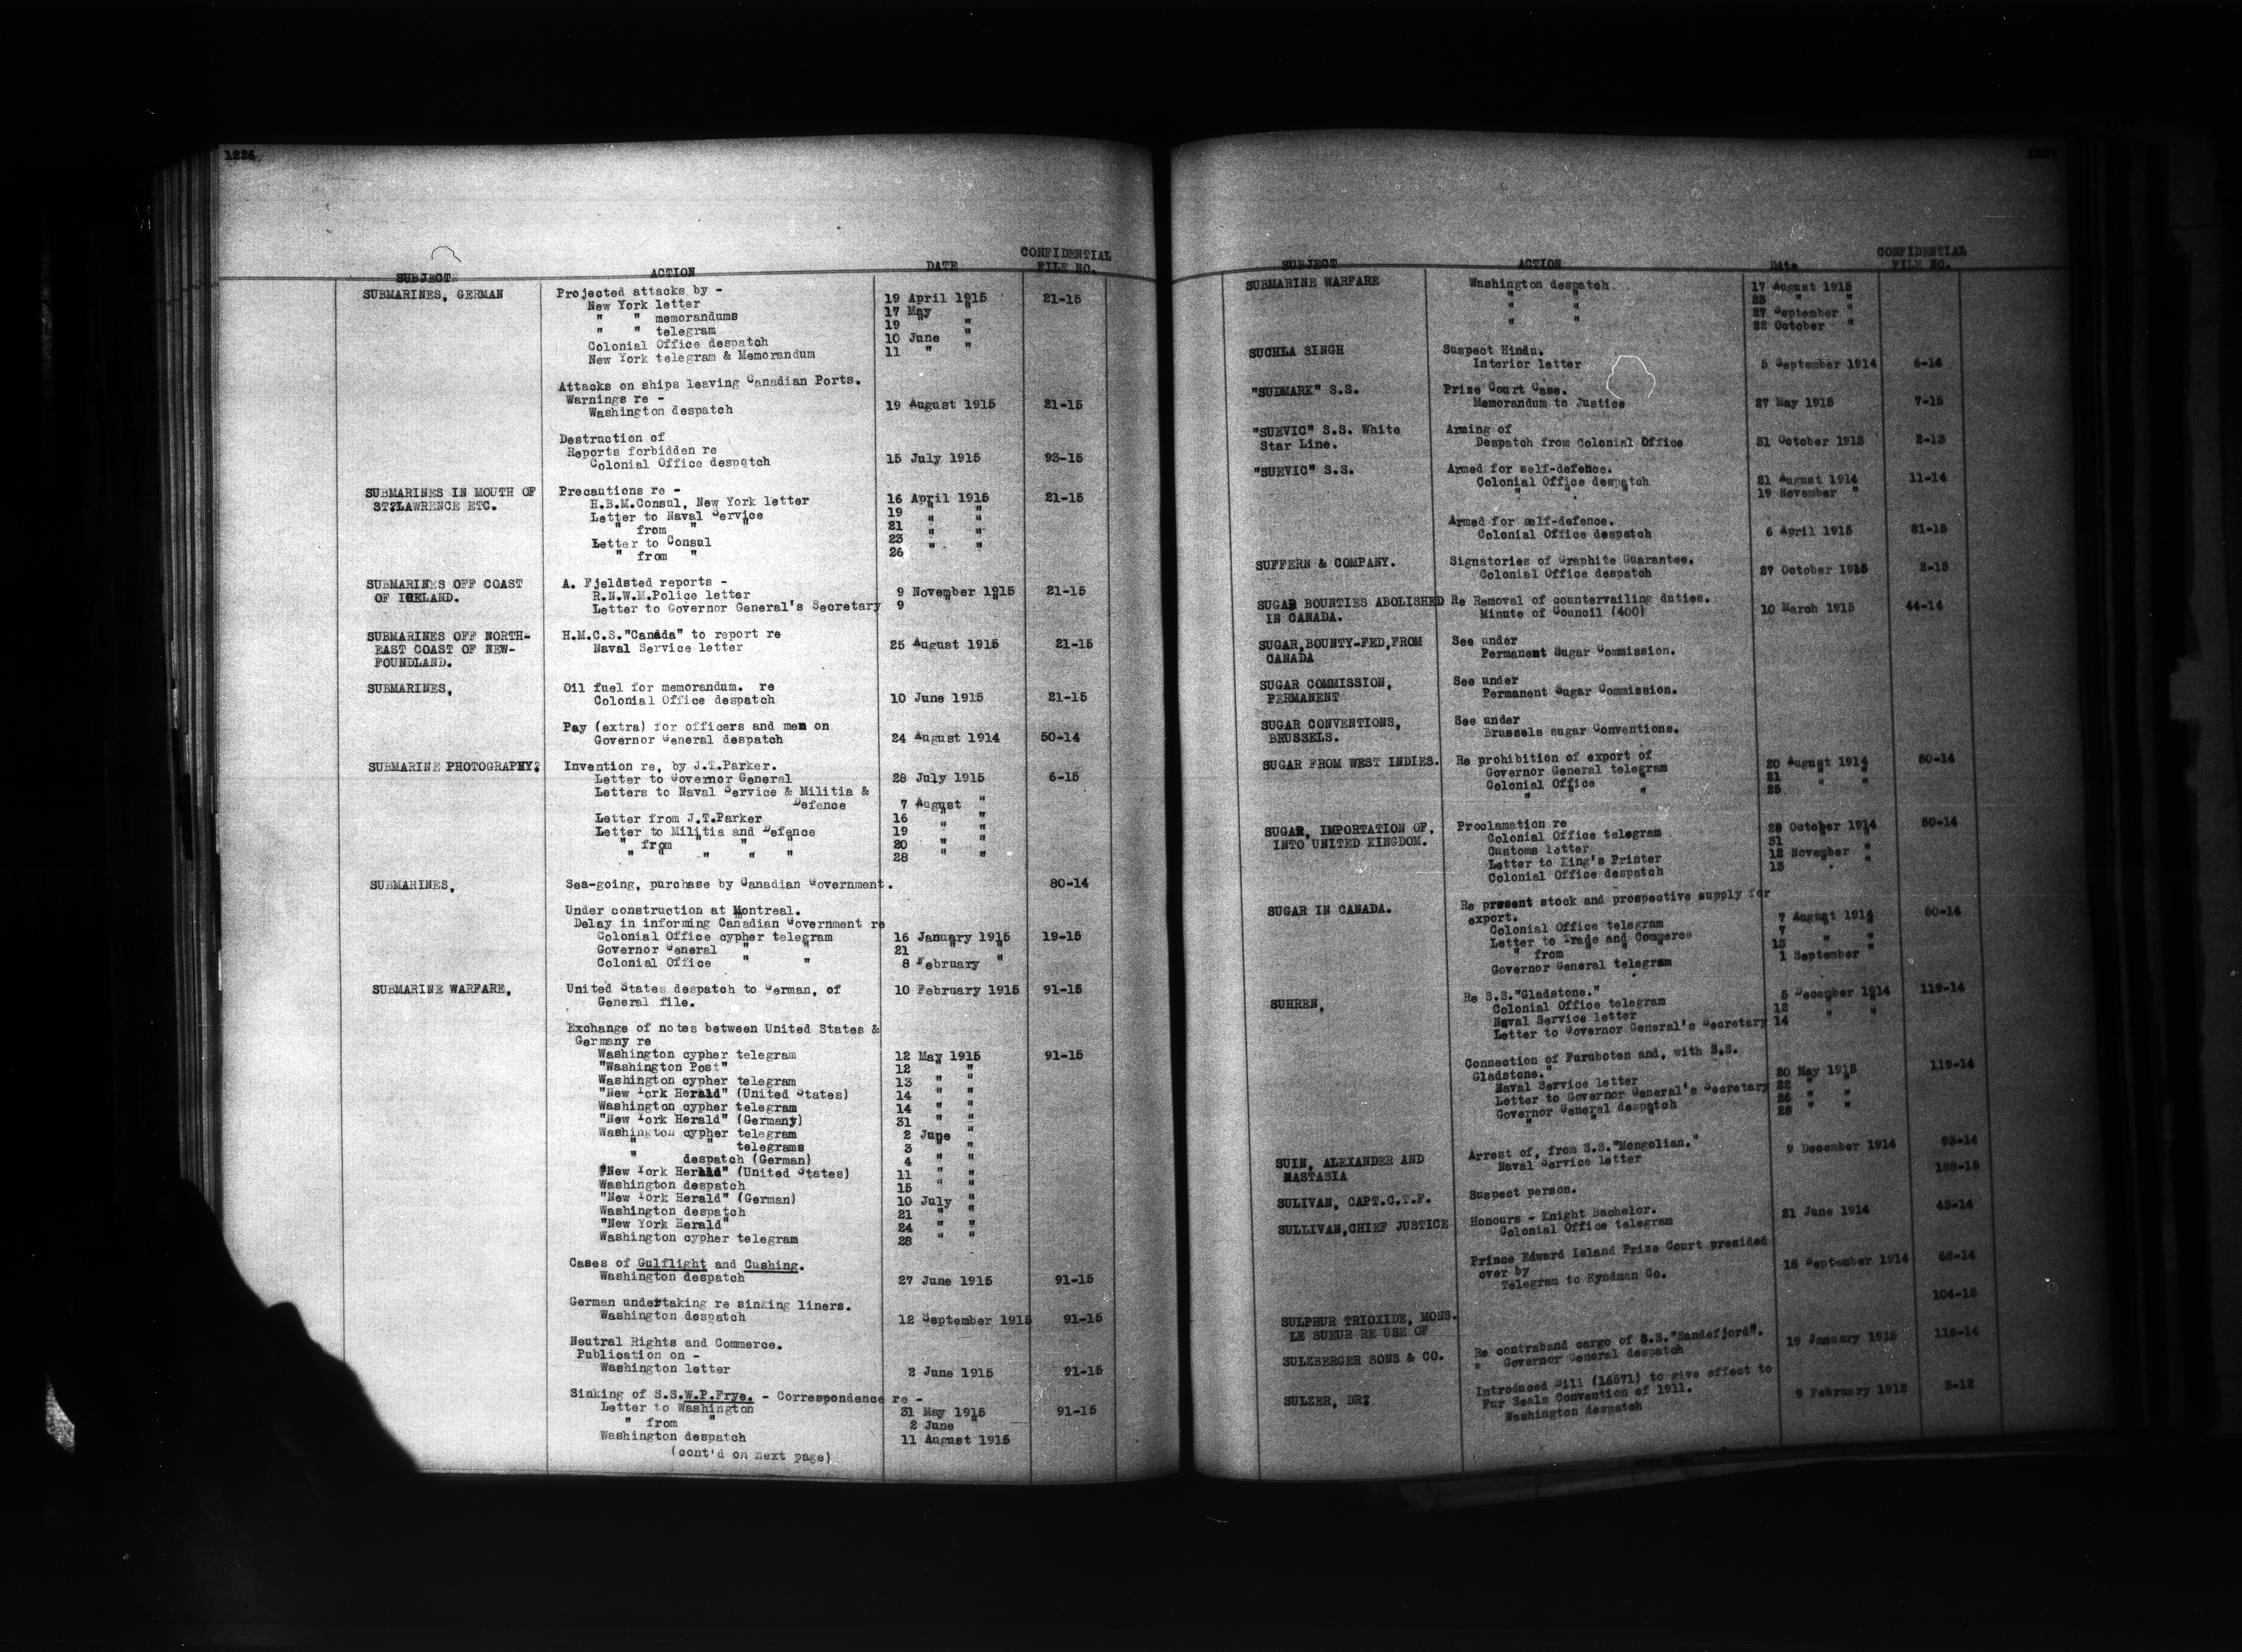 1226
SUBJECT ACTION DATE CONFIDENTIAL FILE NO.
SUBMARINES, GERMAN Projected attacks by -
New York letter 19 April 1915 21-15
" " memorandums 17 May "
" " telegram 19 " "
Colonial Office despatch 10 June "
New York telegram & Memorandum 11 " "
Attacks on ships leaving Canadian Ports.
Warnings re -
Washington despatch 19 August 1915 21-15
Destruction of
Reports forbidden re
Colonial Office despatch 15 July 1915 93-15
SUBMARINES IN MOUTH OF Precautions re -
ST?LAWRENCE ETC. H.B.M.Consul, New York letter 16 April 1915 21-15
Letter to Naval Service 19 " "
" from " " 21 " "
Letter to Consul 23 " "
" from " 26 " "
SUBMARINES OFF COAST A. Fjeldsted reports -
OF IRELAND. R.N.W.M.Police letter 9 November 1915 21-15
Letter to Governor General's Secretary 9 " "
SUBMARINES OFF NORTH- H.M.C.S."Canada" to report re
EAST COAST OF NEW- Naval Service letter 25 August 1915 21-15
FOUNDLAND.
SUBMARINES, Oil fuel for memorandum. re
Colonial Office despatch 10 June 1915 21-15
Pay (extra) for officers and men on
Governor General despatch 24 August 1914 50-14
SUBMARINE PHOTOGRAPHY? Invention re, by J.T.Parker.
Letter to Governor General 28 July 1915 6-15
Letters to Naval Service & Militia &
Defence 7 August "
Letter from J.T.Parker 16 " "
Letter to Militia and Defence 19 " "
" from " " " 20 " "
" " " " " 28 " "
SUBMARINES, Sea-going, purchase by Canadian Government. 80-14
Under construction at Montreal.
Delay in informing Canadian Government re
Colonial Office cypher telegram 16 January 1915 19-15
Governor General " " 21 " "
Colonial Office " " 8 February "
SUBMARINE WARFARE, United States despatch to German, of 10 February 1915 91-15
General file.
Exchange of notes between United States &
Germany re
Washington cypher telegram 12 May 1915 91-15
"Washington Post" 12 " "
Washington cypher telegram 13 " "
"New York Herald" (United States) 14 " "
Washington cypher telegram 14 " "
"New York Herald" (Germany) 31 " "
Washington cypher telegram 2 June "
" " telegrams 3 " "
" despatch (German) 4 " "
"New York Herald" (United States) 11 " "
Washington despatch 15 " "
"New York Herald" (German) 10 July "
Washington despatch 21 " "
"New York Herald" 24 " "
Washington cypher telegram 28 " "
Cases of Gulflight and Cushing.
Washington despatch 27 June 1915 91-15
German undertaking re sinking liners.
Washington despatch 12 September 1915 91-15
Neutral Rights and Commerce.
Publication on -
Washington letter 2 June 1915 91-15
Sinking of S.S.W.P.Frye. - Correspondence re -
Letter to Washington 31 May 1915 91-15
" from " 2 June "
Washington despatch 11 August 1915
(cont'd on next page)
1227
SUBJECT ACTION Date CONFIDENTIAL FILE NO.
SUBMARINE WARFARE Washington despatch 17 August 1915
" " 23 " "
" " 27 September "
" " 22 October "
SUCHLA SINGH Suspect Hindu.
Interior letter 5 September 1914 6-14
"SUDMARK" S.S. Prize Court Case.
Memorandum to Justice 27 May 1915 7-15
"SUEVIC" S.S. White Arming of
Star Line. Despatch from Colonial Office 31 October 1913 2-13
"SUEVIC" S.S. Armed for self-defence.
Colonial Office despatch 21 August 1914 11-14
" " " 19 November "
Armed for self-defence.
Colonial Office despatch 6 April 1915 81-15
SUFFERN & COMPANY. Signatories of Graphite Guarantee.
Colonial Office despatch 27 October 1915 2-15
SUGAR BOUNTIES ABOLISHED Re Removal of countervailing duties.
IN CANADA. Minute of Council (400) 10 March 1915 44-14
SUGAR,BOUNTY-FED,FROM See under
CANADA Permanent Sugar Commission.
SUGAR COMMISSION, See under
PERMANENT Permanent Sugar Commission.
SUGAR CONVENTIONS, See under
BRUSSELS. Brussels sugar Conventions.
SUGAR FROM WEST INDIES. Re prohibition of export of
Governor General telegram 20 August 1914 50-14
Colonial Office " 21 " "
" " " 25
SUGAR, IMPORTATION OF, Proclamation re
INTO UNITED KINGDOM. Colonial Office telegram 29 October 1914 50-14
Customs letter 31 " "
Letter to King's Printer 12 November "
Colonial Office despatch 13 " "
SUGAR IN CANADA. Re present stock and prospective supply for
export.
Colonial Office telegram 7 August 1914 50-14
Letter to Trade and Commerce 7 " "
" from " " " 13 " "
Governor General telegram 1 September "
SUHREN, Re S.S."Gladstone."
Colonial Office telegram 5 December 1914 119-14
Naval Service letter 12 " "
Letter to Governor General's Secretary 14 " "
Connection of Furuboten and, with S.S.
Gladstone."
Naval Service letter 20 May 1915 119-14
Letter to Governor General's Secretary 22 " "
Governor General despatch 26 " "
" " " 28 " "
SUIN, ALEXANDER AND Arrest of, from S.S."Mongolian."
NASTASIA Naval Service letter 9 December 1914 93-14
SULIVAN, CAPT.C.T.F. Suspect person. 168-15
SULLIVAN,CHIEF JUSTICE Honours - Knight Bachelor.
Colonial Office telegram 21 June 1914 43-14
Prince Edward Island Prize Court presided
over by
Telegram to Hyndman Co. 18 September 1914 68-14
SULPHUR TRIOXIDE, MONS. 104-15
LE SUEUR RE USE OF
SULZBERGER SONS & CO. Re contraband cargo of S.S."Sandefjord".
" Governor General despatch 19 January 1915 116-14
SULZER, DR? Introduced Bill (16571) to give effect to
Fur Seals Convention of 1911.
Washington despatch 9 February 1912 3-12